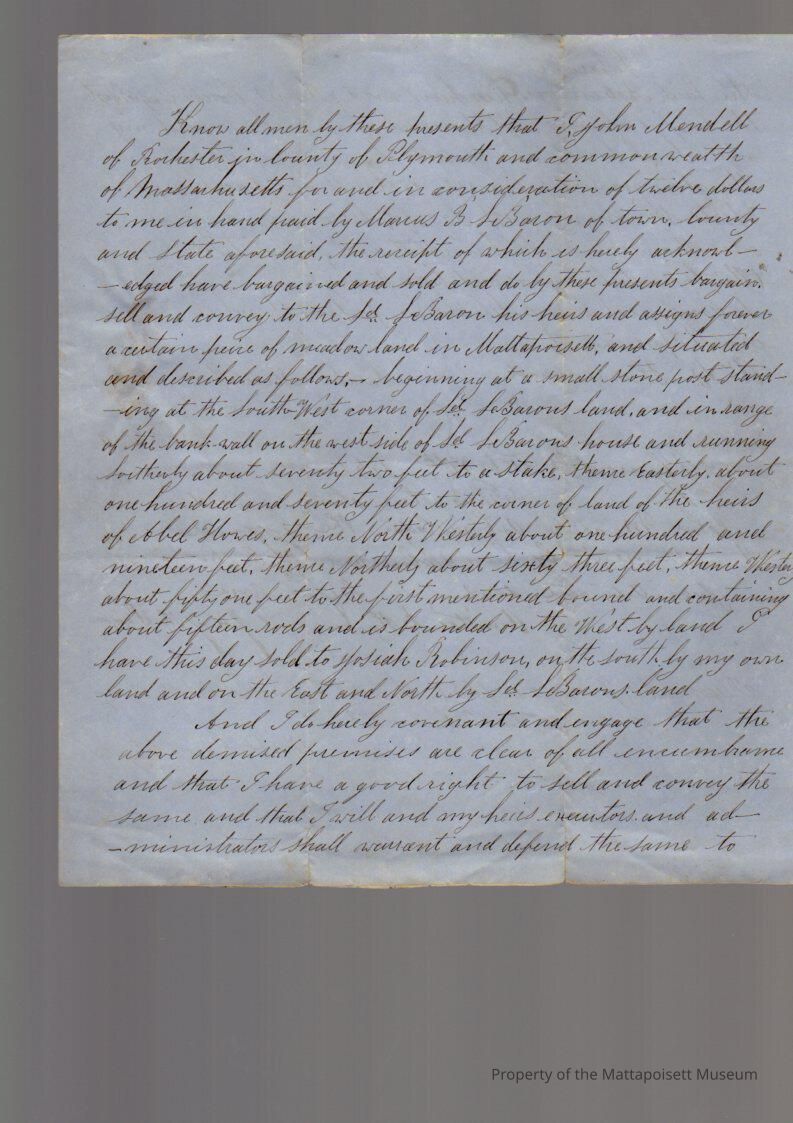 Know all men by these presents that I, John Mendell
of Rochester in County of Plymouth and commonwealth
of Massachusetts for and in consideration of twelve dollars
to me in hand paid by Marcus B LeBaron of town, County
and State aforesaid, the receipt of which is herely acknowl-
-edged have bargained and sold and do by these presents bargain,
sell and convey to the Sd. LeBaron his heirs and assigns forever
a certain peice of meadow land in Mattapoisett, and situated
and described as follows,- beginning at a small stone post stand-
-ing at the South West corner of Sd. LeBarons land, and in range
of the bank-wall on the west side of Sd LeBarons house and running
Sotherly about seventy two feet to a stake, thence Easterly, about
one hundred and seventy feet to the corner of land of the heirs
of Abel Howes, thence North Westerly about one hundred and
nineteen feet, thence Northerly about sixty three feet, thence Westerly
about fifty one feet to the first mentioned bound and containing
about fifteen rods and is bounded on the West by land I
have this day sold to Josiah Robinson, on the south by my own
land and on the East and North by Sd. LeBarons land
And I do herely covenant and engage that the
above demised premises are clear of all encumbrance
and that I have a good right to sell and convey the
same and that I will and my heirs executors and ad-
-ministrators shall warrant and defend the same to
Property of the Mattapoisett Museum